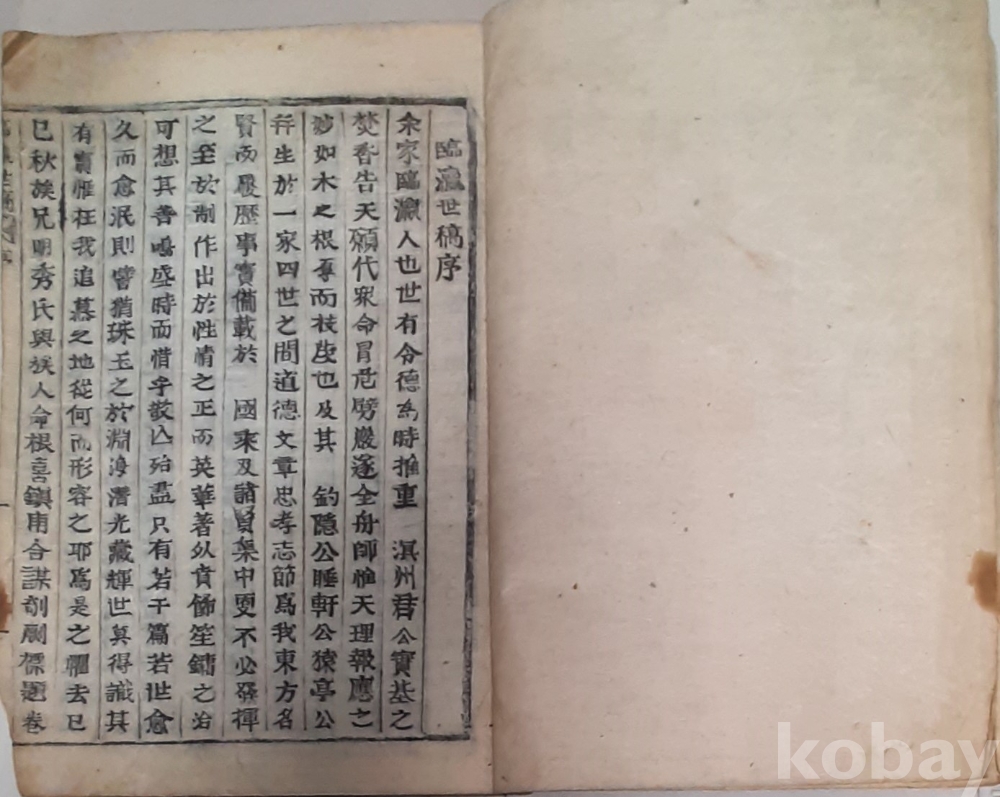 臨瀛世稿序
余家臨瀛人也世有令德為時推重 溟州君公實基之
焚香告天願代衆命冒危劈巖遂全舟師惟天理報應之
妙如木之根厚而枝茂也及其 釣隱公睡軒公猿亭公
并生於一家四世之間道德文章忠孝志節爲我東方名
賢而履歷事實備載於 國乘及諸賢集中更不必發揮
之至於制作出於性情之正而英華著外賁飾笙鏞之治
可想其善鳴盛時而惜乎散亾殆盡只有若干篇若世愈
久而愈泯則譬猶珠玉之於淵海潛光藏輝世莫得識其
有寶惟在我追慕之地從何而形容之耶爲是之懼去已
巳秋族兄明秀氏與族人命根喜鎭甫合謀剞劂標題卷
kobay